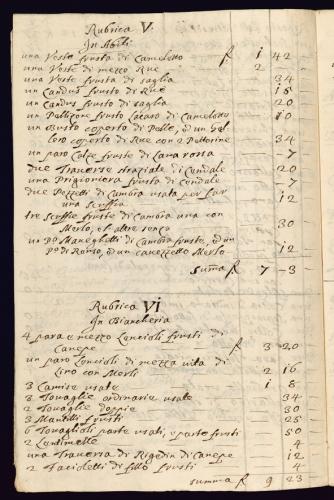 Rubrica V.
In Abiti
una Veste frusta di Camelotto f 1 42
una Veste di mezzo Rue 2 -
una Veste frusta di saglia - 34
un Candus frusto di Rue - 15
un Candus frusto di saglia - 20
un Pellizone frusto di Camelotto - 10
un Busto coperto di Pelle, ed un
coperto di Rue con 2 Pettorine - 34
un paro Calze fruste di Lana rossa - 7
due Traverse straziate di Cendale - 20
una frusta di Cendale - 7
due Pezzetti di Cambra usata per far
una Scuffia - 12
tre Scuffie fruste di Cambra una con
Merlo, e l'altre senza - 30
un p.o Maneghetti di Cambra fruste, ed un
p.o di Renso, ed un cavezzetto Merlo - 12
Suma f 7 - 3
Rubrica VI
In Biancheria
4 para e mezzo Lenzioli frusti di
Canepe f 3 20
un paro Lenzioli di mezza vita di
Lino con Merli 2 16
3 Camise usate 1 8
3 Tovaglie ordinarie usate - 34
2 Tovaglie doppie - 30
3 Mantilli frusti - 25
6 Tovaglioli parte usati, e parte frusti - 50
2 Lentimelle - 4
una Traversa di Rigedin di Canepe - 12
2 Facioletti di fillo frusti - 4
summa f 9 23